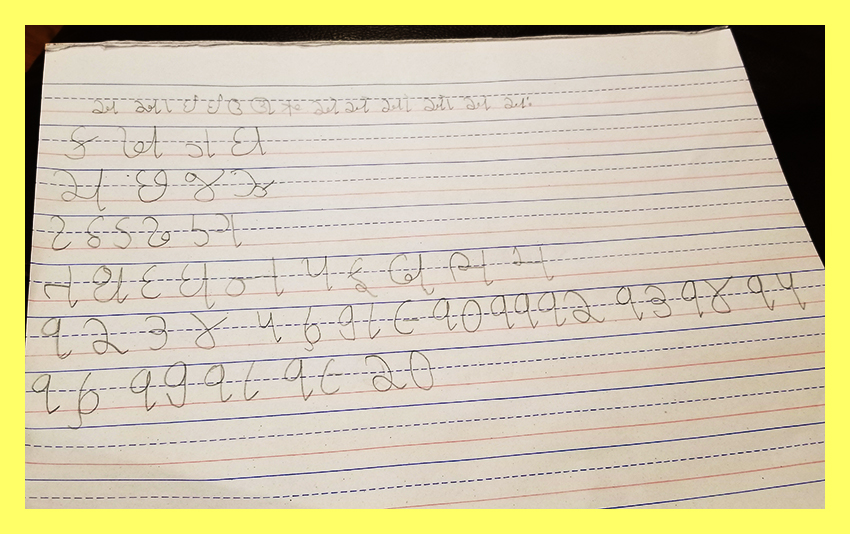 અ આ ઇ ઈ ઉ ઊ ઋ એ ઐ ઓ ઔ અં અઃ
ક ખ ગ ઘ
ચ છ જ ઝ
ટ ઠ ડ ઢ ણ
ત થ દ ધ ન પ ફ બ ભ મ
૧ ૨ ૩ ૪ ૫ ૬ ૭ ૮ ૯ ૧૦ ૧૧ ૧૨ ૧૩ ૧૪ ૧૫
૧૬ ૧૭ ૧૮ ૧૯ ૨૦